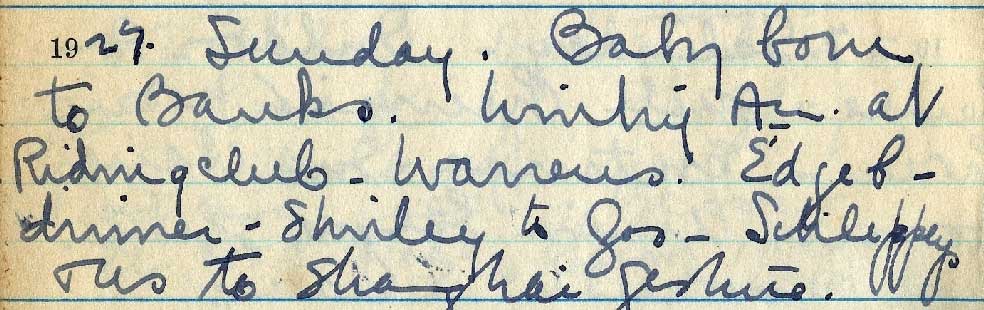 1927. Sunday. Baby born
to Banks. Am. at
Riding club - Warrens. Edgeb -
dinner - Shirley to Jos - Schleppeys
& us to Shanghai Gesture.